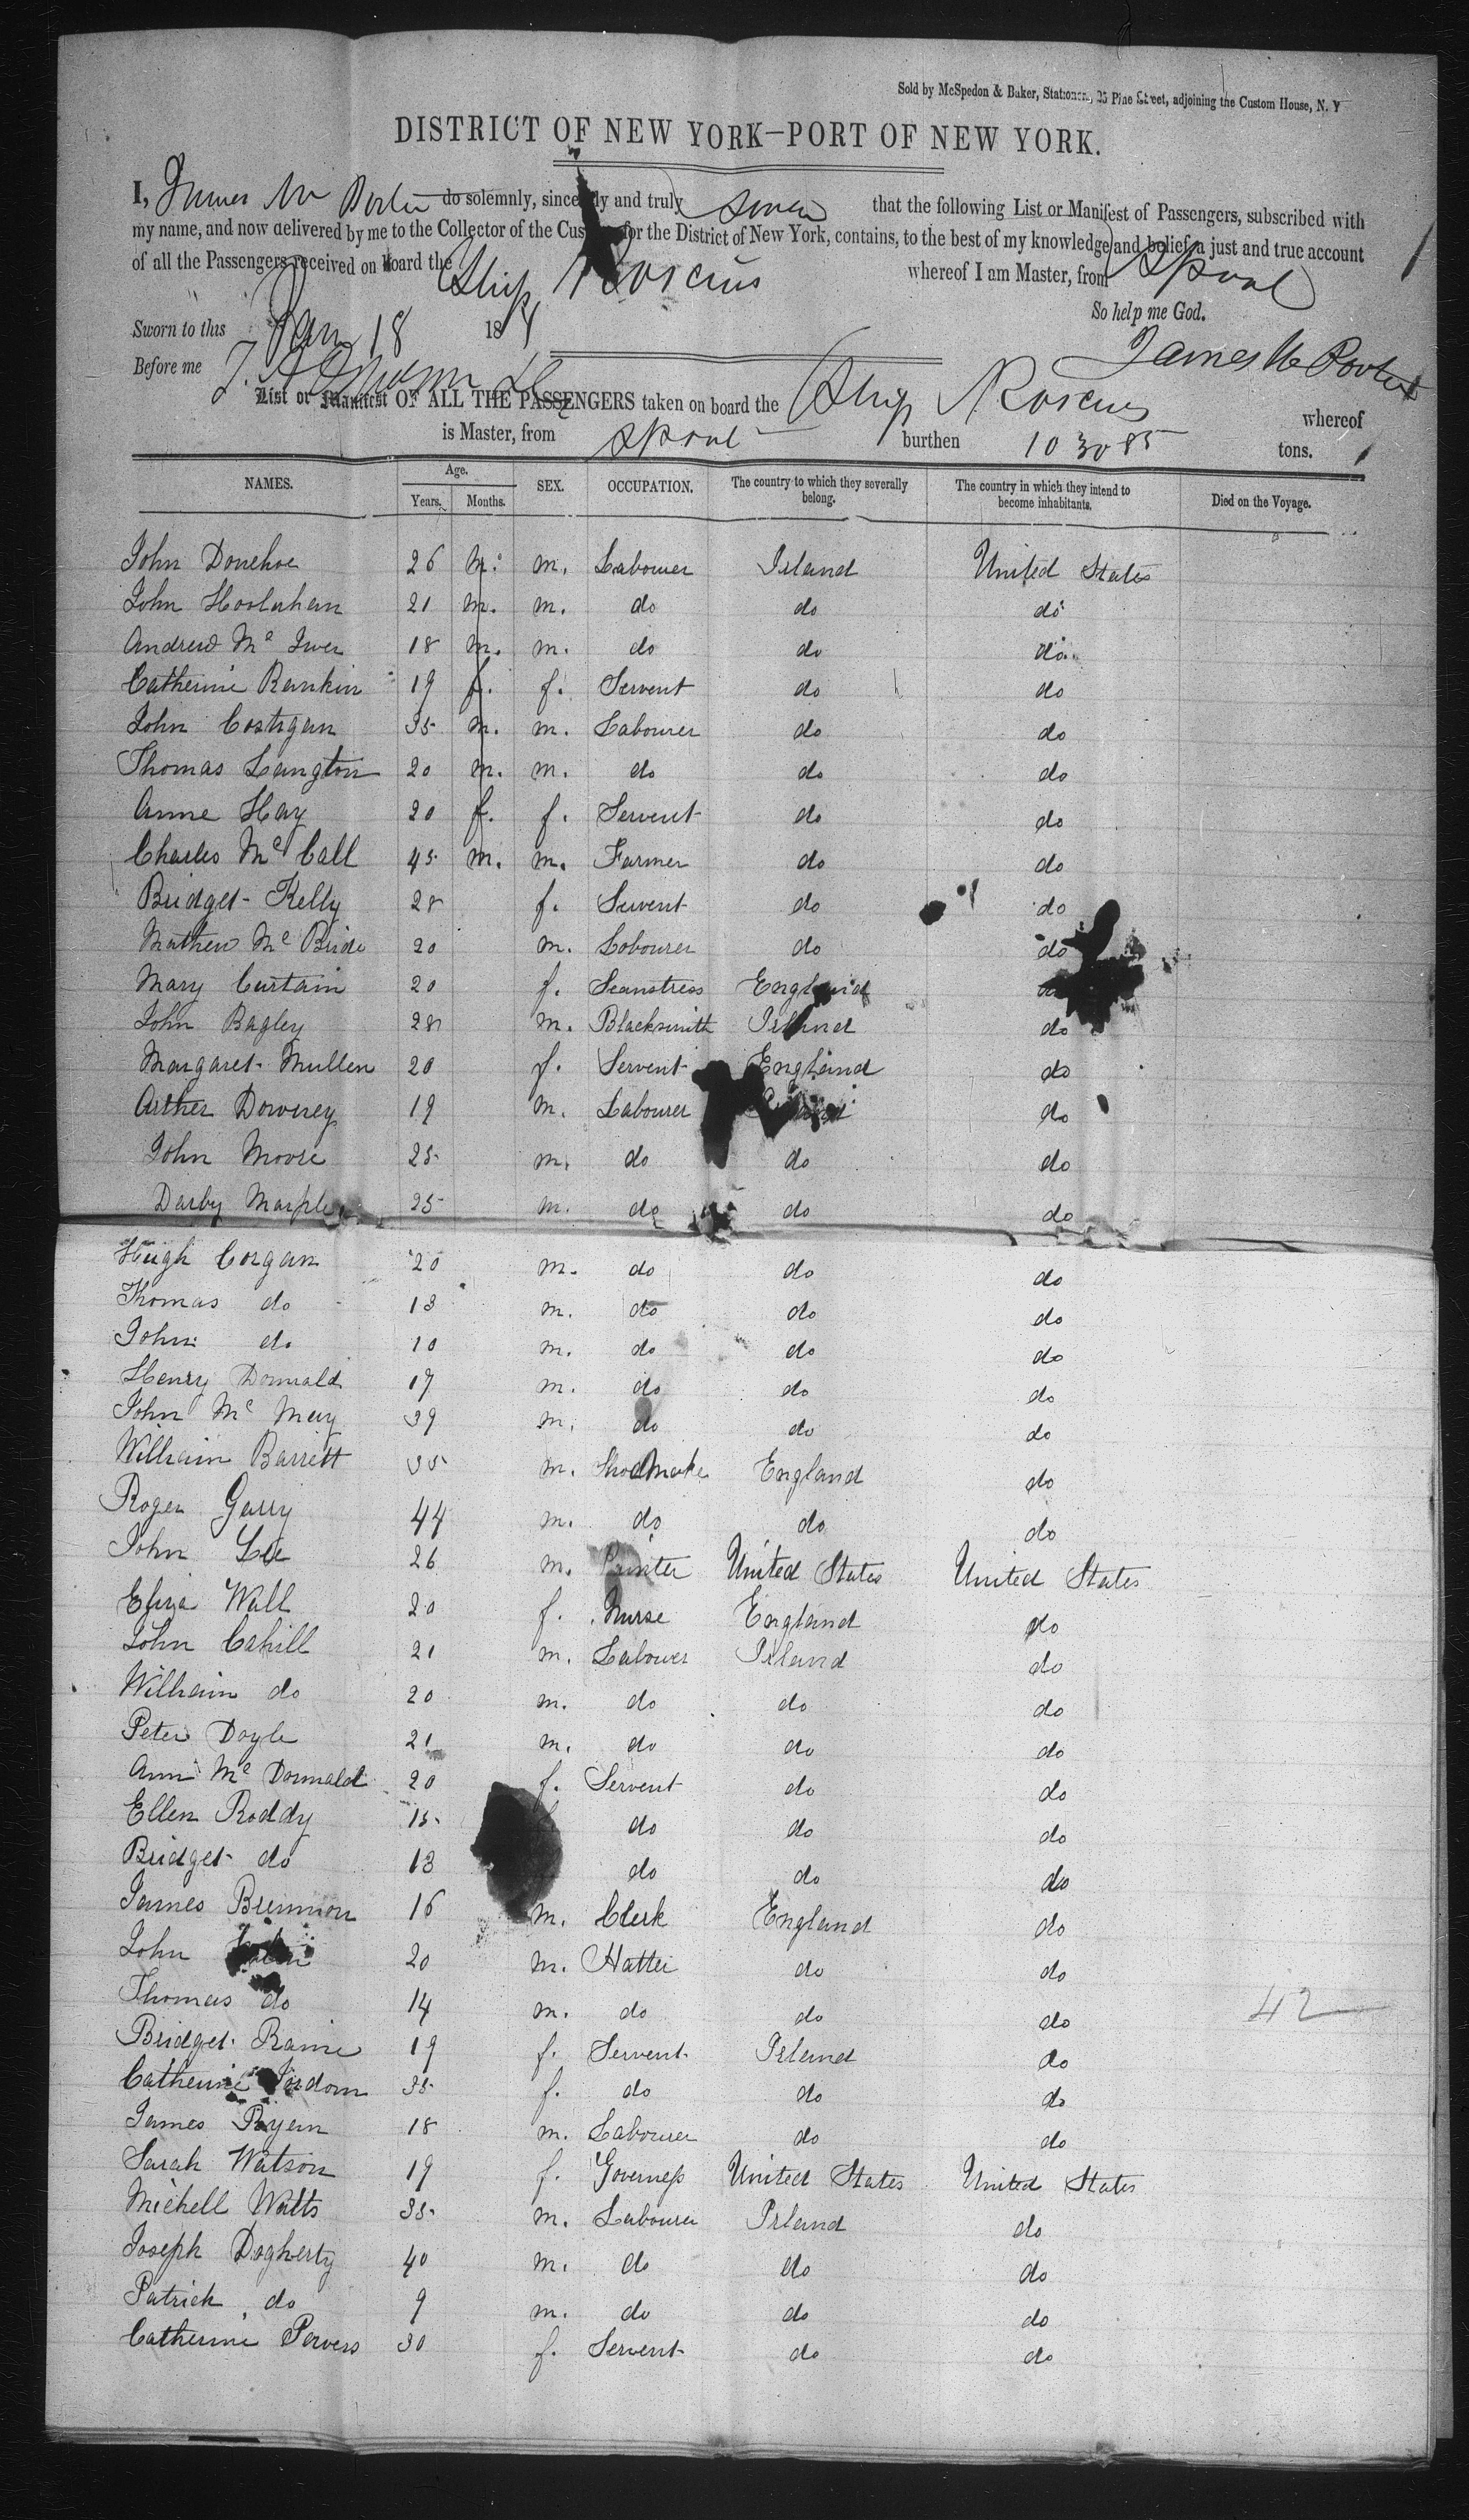 Sold by McSpedon & Baker, Stationers, 25 Pine Street, adjoining the Custom House, N. Y
DISTRICT OF NEW YORK—PORT OF NEW YORK.
I, James W Porter do solemnly, sincerely and truly swear that the following List or Manifest of Passengers, subscribed with
my name, and now delivered by me to the Collector of the Customs for the District of New York, contains, to the best of my knowledge and belief, a just and true account
of all the Passengers received on board the Ship Roscius whereof I am Master, from Lpool
So help me God.
Sworn to this Jan 18 18
Before me James W Porter
List or Manifest OF ALL THE PASSENGERS taken on board the Ship Roscius whereof
is Master, from Lpool burthen 1030 85 tons.
NAMES. Age. SEX. OCCUPATION. The country to which they severally belong. The country in which they intend to become inhabitants. Died on the Voyage.
Years. Months.
John Donehoe 26 m. m. Labourer Irland United States
John Hoolahan 21 m. m. do do do
Andrew Mc Iver 18 m. m. do do do
Catherine Rankin 19 f. f. Servent do do
John Costigan 35 m. m. Labourer do do
Thomas Langton 20 m. m. do do do
Anne Hay 20 f. f. Servent do do
Charles Mc Call 45 m. m. Farmer do do
Bridget Kelly 28 f. Servent do do
Mathew Mc Bride 20 m. Labourer do do
Mary Curtain 20 f. Seamstress England do
John Bagley 28 m. Blacksmith Irland do
Margaret Mullen 20 f. Servent England do
Arther Downey 19 m. Labourer do
John Moore 25 m. do do do
Darby Marple 25 m. do do do
Hugh Corgan 20 m. do do do
Thomas do 13 m. do do do
John do 10 m. do do do
Henry Donnald 17 m. do do do
John Mc Mey 39 m. do do do
William Barrett 35 m. Shoemake England do
Roger Garry 44 m. do do do
John Lee 26 m. Printer United States United States
Eliza Wall 20 f. Nurse England do
John Cahill 21 m. Labourer Irland do
William do 20 m. do do do
Peter Doyle 21 m. do do do
Ann Mc Donnald 20 f. Servent do do
Ellen Roddy 15 do do do
Bridget do 13 do do do
James Brennion 16 m. Clerk England do
John 20 m. Hatter do do
Thomas do 14 m. do do do
42
Bridget Raine 19 f. Servent Irland do
Catherine Jordom 35 f. do do do
James Ryan 18 m. Labourer do do
Sarah Watson 19 f. Governess United States United States
Michell Watts 35 m. Labourer Irland do
Joseph Dogherty 40 m. do do do
Patrick do 9 m. do do do
Catherine Powers 30 f. Servent do do